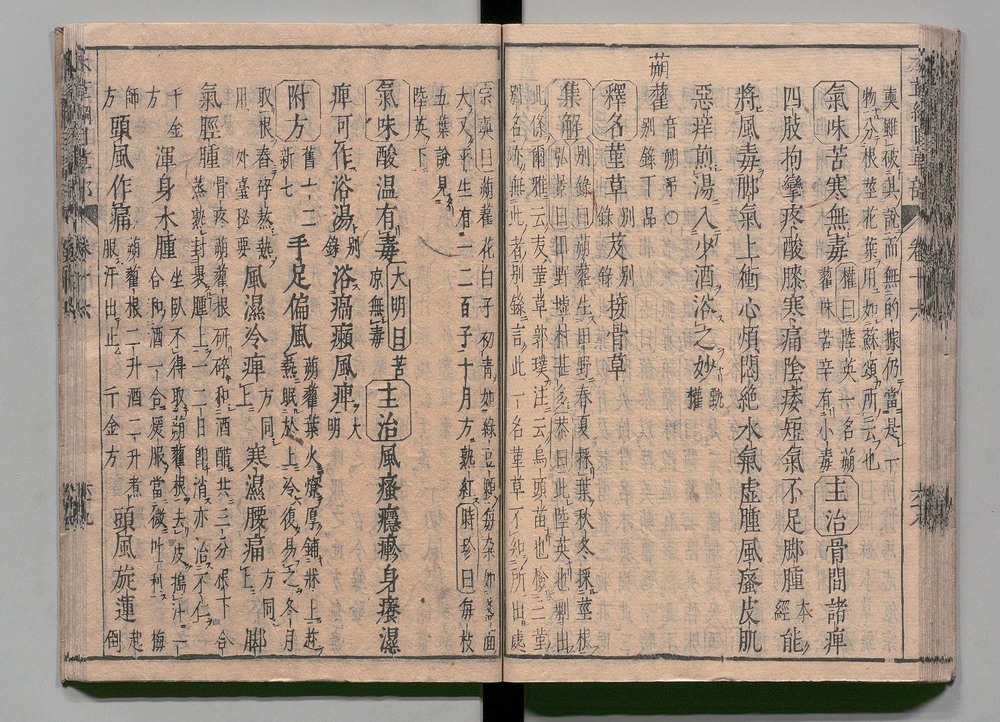 奭雖破其說而無的據仍當是一
物分根莖花葉用如蘇頌所云也
氣味苦寒無毒權曰陸英一名蒴藋味苦辛有小毒主治骨間諸痺
四肢拘攣疼酸膝寒痛陰痿短氣不足脚腫本經能
將風毒脚氣上衝心煩悶絕水氣虛腫風瘙皮肌
惡痒煎湯入少酒浴之妙甄權
蒴藋音朔弔〇别錄下品
釋名堇草别錄芨别錄接骨草
集解别錄曰蒴藋生田野春夏采葉秋冬采莖根
弘景曰田野墟村甚多恭曰此陸英也剩出
此條爾雅云芨堇草郭璞注云烏頭苗也檢三堇
别名亦無此者别錄言此一名堇草不知所出處
宗奭曰蒴藋花白子初青如綠豆顆每朶如盞面
大又平生有一二百子十月方熟紅時珍曰每枝
五葉說見陸英下
氣味酸温有毒大明曰苦凉無毒主治風瘙癮疹身癢濕
痺可作浴湯别錄浴㿈癩風痺大明
附方舊十二新七手足偏風蒴藋葉火燎厚鋪牀上趁熱眠於上冷復易之冬月
取根舂碎熬熱用外臺秘要風濕冷痺方同上寒濕腰痛方同上脚
氣脛腫骨疼蒴藋根研碎和酒醋共三分根下合蒸熟封裹腫上一二日卽消亦治不仁
千金方渾身水腫坐臥不得取蒴藋根去皮搗汁一合和酒一合煖服當微吐利梅
師方頭風作痛蒴藋根二升酒二升煮服汗出止千金方頭風旋運起倒